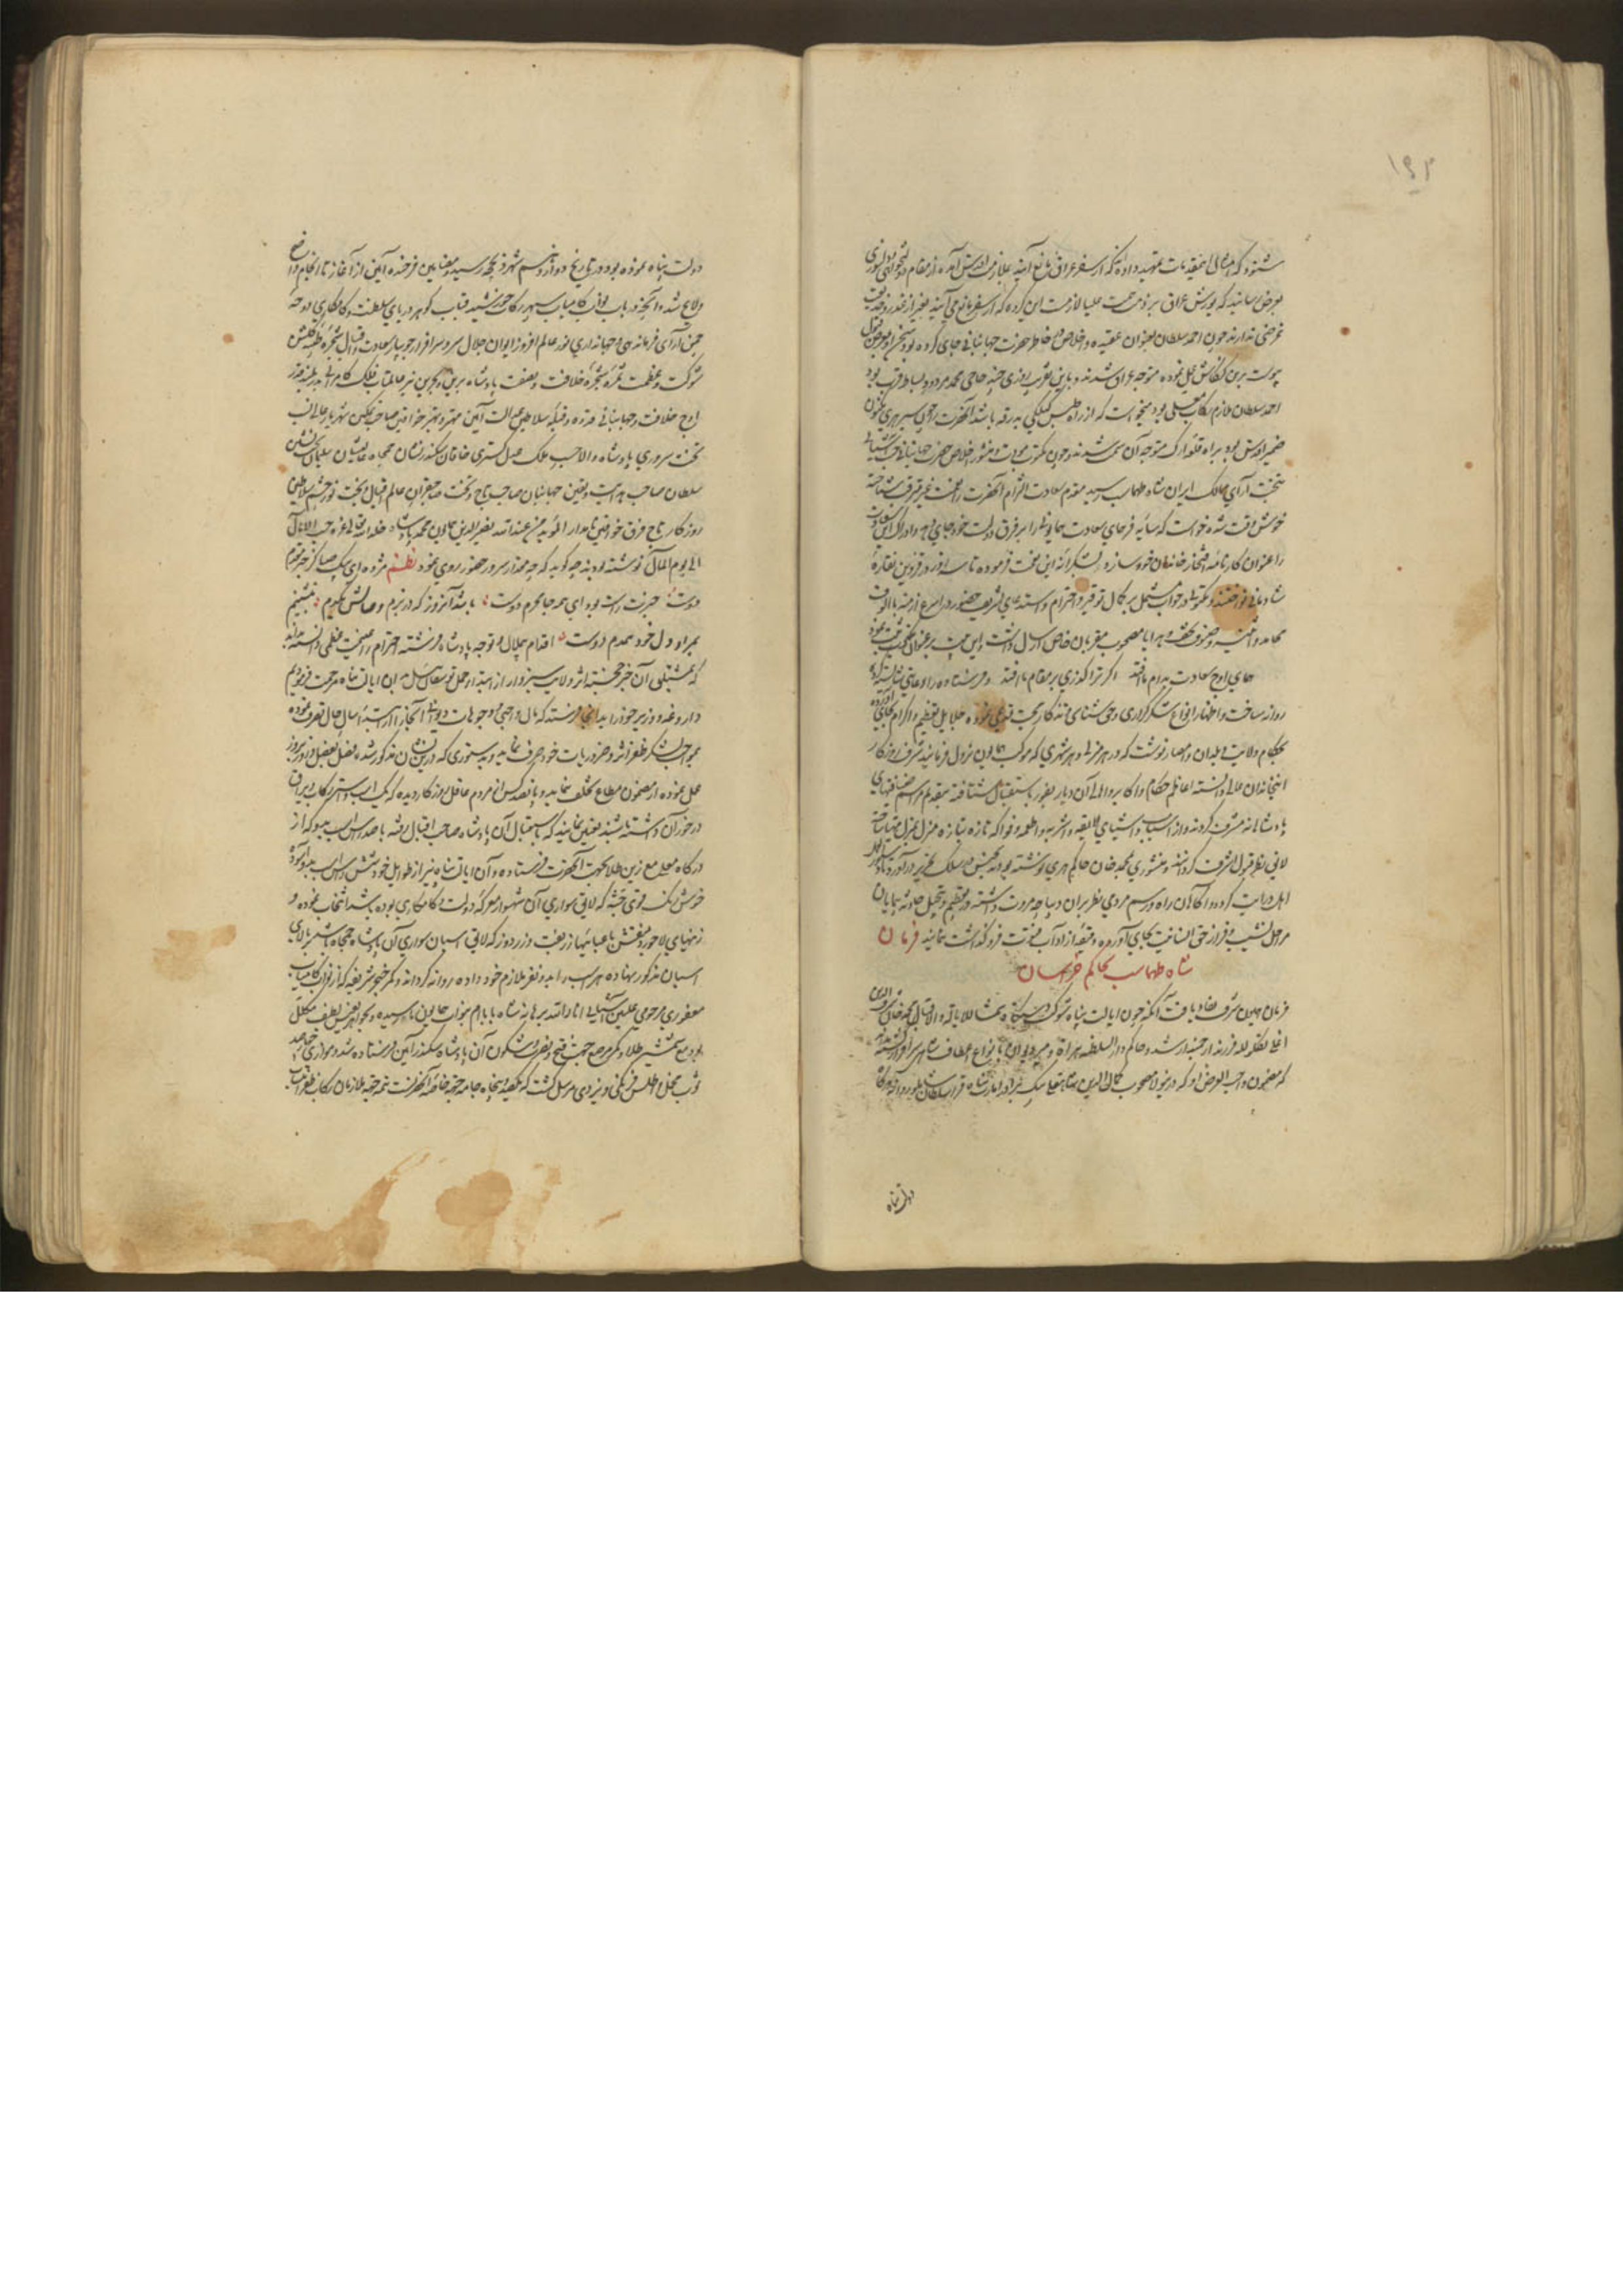 ۱۹۲
شنود که
بعرض رسانید که یورش عراق
غرضی ندارند چون احمد سلطان بعنوان عقیده و اخلاص در خاطر حضرت جهانبانی جای کرده بود سخن او
پیوست برین کنکاش عمل نموده متوجه عراق شدند و باین تقریب روزی چند حاجی محمد مردود بساط قرب بود
احمد سلطان ملازم رکاب معلی بود میخواست که از راه طبس کیلکی بدرقه باشد آنحضرت را چون سیر هری مکنون
ضمیر اقدس بود براه قلعه اوک متوجه آن سمت شدند و چون مکتوب مودت و منشور اخلاص حضرت جهانبانی جنت آشیانی
بتخت آرای ممالک ایران شاه طهماسب رسید مقدم سعادت التزام آنحضرت را نعمت غیر مترقب شناخته
خوش وقت شد و خواست که سایه فرهمای سعادت همایون را بر فرق دولت خود جای دهد و ادراک این سعادت
را عنوان کارنامه افتخار خاندان خود سازد بشکرانه این نعمت فرموده تا سه روز در قزوین نقاره
شادمانی نواختند و مکتوبی در جواب مشتمل بر کمال توقیر و احترام و استدعای تشریف حضور در اسرع ازمنه با الوف
محامد و اثنیه و صنوف تحف و هدایا مصحوب مقربان خاص ارسال داشت و این بیت بر عنوان مکتوب ثبت نمود
همای اوج سعادت بدام ما افتد اگر ترا گذری بر مقام ما افتد و فرستاده را رعایتی شایسته کرده
روانه ساخت و اظهار انواع شکرگزاری و حق شناسی و تذکار محبت قدیمی نموده جلایل تعظیم و اکرام بجای آورده
بحکام ولایت و بلدان و امصار نوشت که در هر منزل و هر شهری که موکب همایون نزول فرمایند شرف روزگار
آنخاندان عالی دانسته اعاظم حکام و اکابر و اهالی آن دیار بفور باستقبال شتافته بتقدیم مراسم ضیافتهای
پادشاهانه مشرف گردند و از اسباب و اشیای لایقه و اشربه و اطعمه و فواکه تازه بتازه منزل بمنزل مهیا ساخته
لایق نظر قبول اشرف گردانند و منشوری بمحمد خان حاکم هری نوشته بود بجنس در سلک تحریر در آورد تا دستور العمل
اهل درایت گردد و آگاهان راه و رسم مردمی نظر بران دیباچه مروت داشته در تعظیم و تبجیل حادثه پیمایان
مراحل نشیب و فراز حق انسانیت بجای آورده دقیقه از آداب فتوت فروگذاشت ننمایند فرمان
شاه طهماسب بحاکم خراسان
فرمان همایون شرف نفاذ یافت آنکه چون ایالت پناه شوکت دستگاه شمسا للایالة والاقبال محمد خان شرف الدین
اغلی تکلو لله فرزند ارجمند ارشد و حاکم دار السلطنه هراة و میر دیوان بانواع اعطاف شاهی سرافراز گشته بداند
که مضمون واجب العرض او که درینولا مصحوب کمال الدین شاه قلی بیک برادر امارت پناه قرا سلطان شاملو روانه درگاه
دولت پناه
دولت پناه نموده بود در تاریخ دوازدهم شهر ذیحجه رسید و مضامین فرخنده آیین از آغاز تا انجام واضح
و لایح شد و آنچه در باب نواب کامیاب سپهر رکاب خورشید قباب گوهر دریای سلطنت و کامگاری دوحه
چمن آرای فرماندهی و جهانداری نور عالم افروز ایوان جلال سرو سرافراز جویبار سعادت و اقبال شجره طیبه گلشن
شوکت و عظمت ثمره شجره خلافت و نصفت پادشاه برین و بحرین نیر عالمتاب فلک کامرانی بدر بلند قدر
اوج خلافت و جهانبانی قدوه و قبله سلاطین عدالت آیین مهتر و بهتر خواقین صاحب تمکین شهریار عالی نسب
تخت سروری پادشاه والا حسب ملک عدل گستری خاقان سکندر نشان جمجاه عالیشان سلیمان تخت نشین
سلطان صاحب هدایت و یقین جهانبان صاحب تاج و تخت صاحبقران عالم اقبال و بخت نور چشم سلاطین
روزگار تاج فرق خواقین نامدار المؤید من عند الله نصیر الدین همایون محمد پادشاه خلد الله تعالی عزه حسب الامال
الی یوم المآل نوشته بودند چگوید که چه مقدار سرور و حضور روی نمود نظم مژده ای پیک صبا کز خبر مقدم
دوست خبرت راست بود ای همه جا محرم دوست باشد آنروز که در بزم وصالش یکدم بنشینم
بمراد دل خود همدم دوست اقدام بیملال و توجه پادشاه فرشته احترام را غنیمت عظمی دانسته بداند
که بمشتلق آن خبر خجسته اثر ولایت سبزوار از ابتداء حمل توشقان ئیل بدان ایالت پناه مرحمت فرمودیم
داروغه و وزیر خود را بدانجا فرستد که مال و واجبی و وجوهات دیوانی آنجا را از ابتداء سال حال تصرف نموده
بمواجب لشکر ظفر اثر و ضروریات خود صرف نماید و بدستوری که درین نشان مذکور شده فصل بفصل و روز بروز
عمل نموده از مضمون مطاع تخلف ننماید و پانصد کس از مردم عاقل روزگار دیده که یک اسب و استر رکاب و یراق
درخور آن داشته باشند تعیین نمایند که باستقبال آن پادشاه صاحب اقبال رفته با صد راس اسب بدو که از
درگاه معلی مع زین طلا بجهت آنحضرت فرستاده و آن ایالت پناه نیز از طوایل خود شش راس اسب بدو آسوده
خوش رنگ قوی جثه که لایق سواری آن شهسوار معرکه دولت و کامگاری بوده باشد انتخاب نموده و
زینهای لاجوردی منقش با عبائیها زربفت و زردوز که لایق اسپان سواری آن پادشاه جمجاه باشد بر بالای
اسپان مذکور نهاده هر اسب را بدو نفر ملازم خود داده روانه گردانند و کمر خنجر شریفه که از نواب کامیاب
مغفوری مرحومی علیین آشیانی انار الله برهانه شاه بابام بنواب همایون ما رسیده و بجواهر نفیس لطیف مکلل
بود مع شمشیر طلا و کمر مرصع جهت فتح و نصرت و شگون آن پادشاه سکندر آیین فرستاده شد و موازی چهارصد
ثوب مخمل و اطلس فرنگی و یزدی مرسل گشت که یکصد و بیست جامه جهة خاصه آنحضرتست تتمه جهة ملازمان رکاب ظفر انتساب